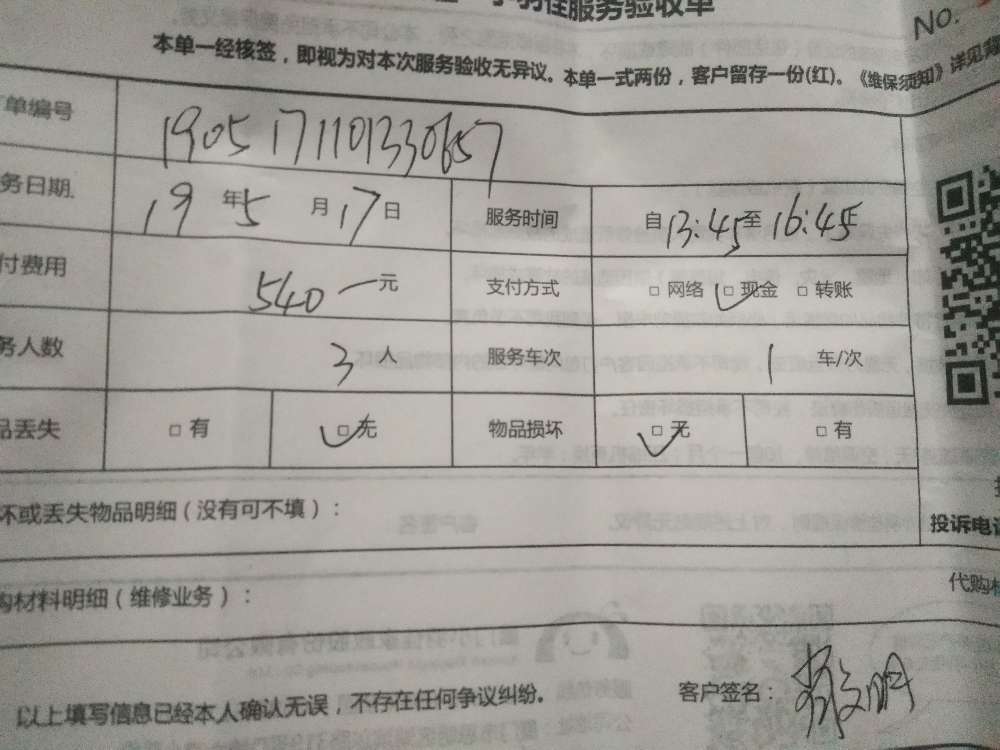 服务验收单
No.
本单一经核签，即视为对本次服务验收无异议。本单一式两份，客户留存一份(红)。《维保须知》详见背
单编号 1905171101330657
务日期 19年5月17日 服务时间 自13:45至16:45
付费用 540元 支付方式 □网络 □现金 □转账
务人数 3人 服务车次 1车/次
品丢失 □有 □无 物品损坏 □无 □有
坏或丢失物品明细(没有可不填)：
投诉电话
购材料明细(维修业务)：
代购材
以上填写信息已经本人确认无误，不存在任何争议纠纷。 客户签名：